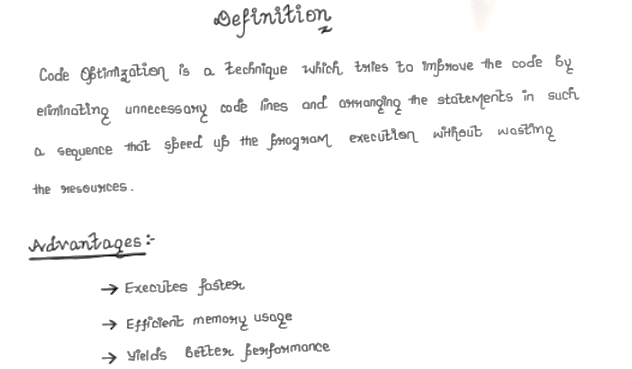 Definition
Code Optimization is a technique which tries to improve the code by
eliminating unnecessary code lines and arranging the statements in such
a sequence that speed up the program execution without wasting
the resources.
Advantages:-
→ Executes faster
→ Efficient memory usage
→ Yields better performance